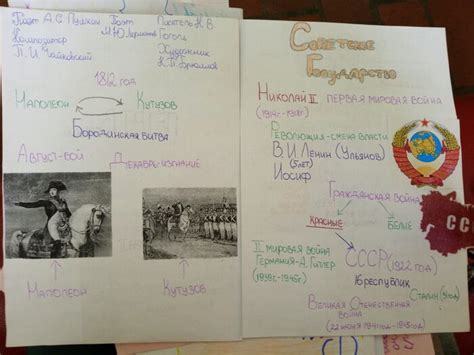 Поэт А.С. Пушкин
Композитор
П.И. Чайковский
Поэт
М.Ю. Лермонтов
Писатель Н.В.
Гоголь
Художник
К.П. Брюллов
1812 год
Наполеон
Кутузов
Бородинская битва
Август-бой
Декабрь-изгнание
Наполеон
Кутузов
Советское
Государство
Николай II
Первая мировая война
(1914г.-1918г.)
Революция-смена власти
В.И. Ленин (Ульянов)
(5лет)
Иосиф
Гражданская война
Красные
Белые
СС
II мировая война
Германия-А. Гитлер
(1939г.-1945г.)
СССР (1922 год)
республик
Сталин
Великая Отечественная
война
(22 июня 1941год-1945год)